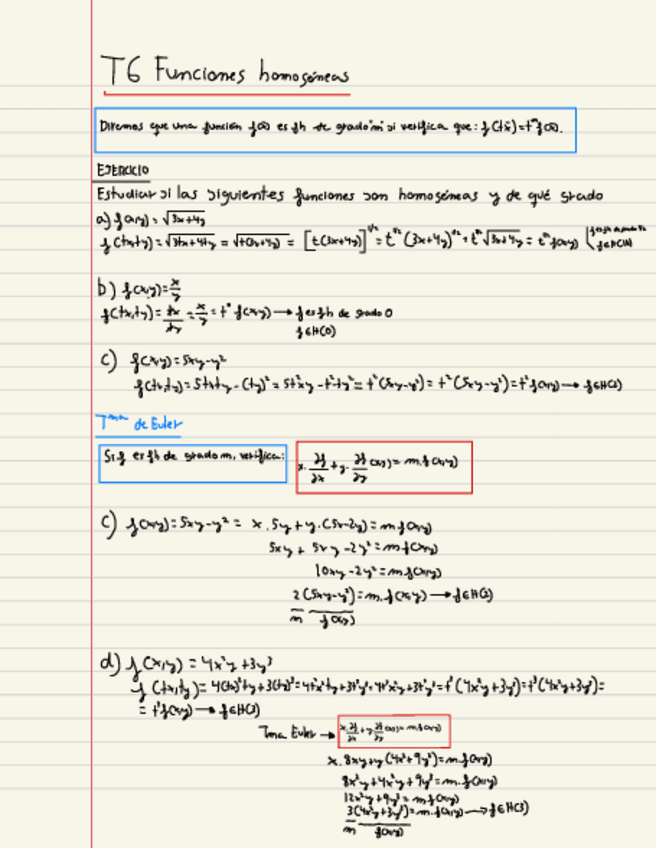 T6 Funciones homogéneas
Diremos que una función f(x) es fh de grado m si verifica que: f(tx) = tᵐ f(x).
EJERCICIO
Estudiar si las siguientes funciones son homogéneas y de qué grado
a) f(x,y) = √3x+4y
f(tx,ty) = √3tx+4ty = √t(3x+4y) = [t(3x+4y)]^1/2 = t^1/2 (3x+4y)^1/2 = t^1/2 √3x+4y = t^1/2 f(x,y)
b) f(x,y) = x/y
f(tx,ty) = tx/ty = x/y = t⁰ f(x,y) → f es fh de grado 0
f∈H(0)
c) f(x,y) = 5xy-y²
f(tx,ty) = 5txty - (ty)² = 5t²xy - t²y² = t²(5xy-y²) = t²(5xy-y²) = t² f(x,y) → f∈H(2)
Tma de Euler
Si f es fh de grado m, verifica:
x · ∂f/∂x + y · ∂f/∂y (x,y) = m · f(x,y)
c) f(x,y) = 5xy-y² = x·5y + y·(5x-2y) = m f(x,y)
5xy + 5xy - 2y² = m f(x,y)
10xy - 2y² = m f(x,y)
2(5xy-y²) = m·f(x,y) → f∈H(2)
m f(x,y)
d) f(x,y) = 4x²y + 3y³
f(tx,ty) = 4(tx)²ty + 3(ty)³ = 4t²x²ty + 3t³y³ = 4t³x²y + 3t³y³ = t³(4x²y+3y³) = t³(4x²y+3y³) =
= t³ f(x,y) → f∈H(3)
Tma Euler → x · ∂f/∂x + y · ∂f/∂y (x,y) = m f(x,y)
x·8xy + y(4x²+9y²) = m·f(x,y)
8x²y + 4x²y + 9y³ = m·f(x,y)
12x²y + 9y³ = m f(x,y)
3(4x²y+3y³) = m·f(x,y) → f∈H(3)
m f(x,y)